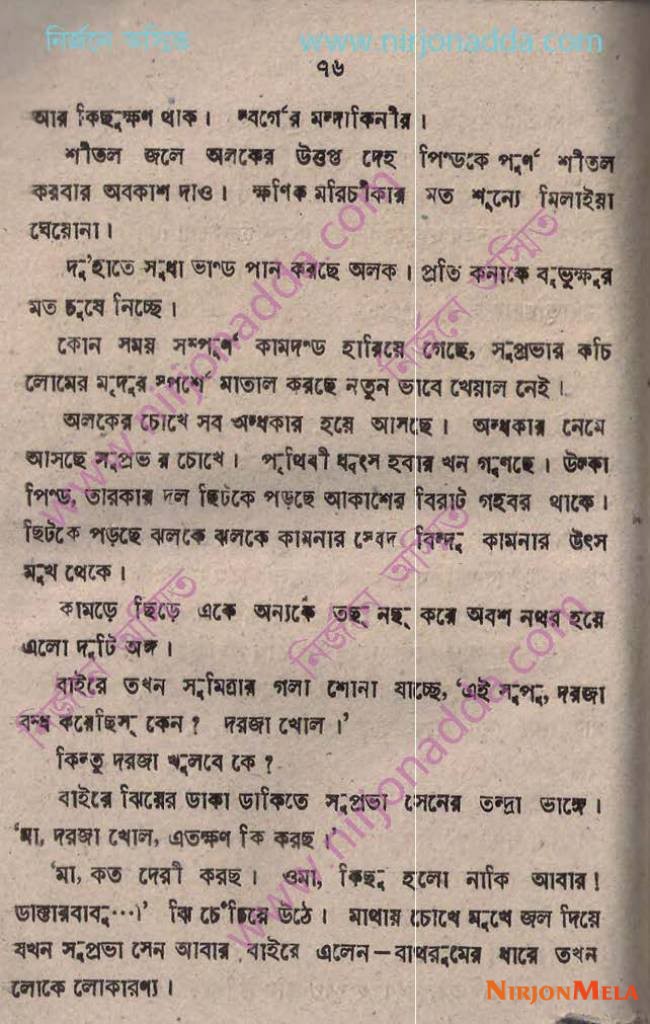 নির্জনে অসিত www.nirjonadda.com
৭৬
আর কিছুক্ষণ থাক। স্বর্গের মন্দাকিনীর।
শীতল জলে অলকের উত্তপ্ত দেহ পিণ্ডকে পূর্ণ শীতল
করবার অবকাশ দাও। ক্ষণিক মরিচীকার মত শূন্যে মিলাইয়া
যেয়োনা।
দু'হাতে সুধা ভাণ্ড পান করছে অলক। প্রতি কনাকে বুভুক্ষুর
মত চুষে নিচ্ছে।
কোন সময় সম্পূর্ণ কামদণ্ড হারিয়ে গেছে, সুপ্রভার কচি
লোমের মৃদুর স্পর্শে মাতাল করছে নতুন ভাবে খেয়াল নেই।
অলকের চোখে সব অন্ধকার হয়ে আসছে। অন্ধকার নেমে
আসছে সুপ্রভ র চোখে। পৃথিবী ধ্বংস হবার খন গুণছে। উল্কা
পিণ্ড, তারকার দল ছিটকে পড়ছে আকাশের বিরাট গহবর থাকে।
ছিটকে পড়ছে ঝলকে ঝলকে কামনার স্বেদ বিন্দু কামনার উৎস
মুখ থেকে।
কামড়ে ছিড়ে একে অন্যকে তছ্ নছ্ করে অবশ নথর হয়ে
এলো দুটি অঙ্গ।
বাইরে তখন সুমিত্রার গলা শোনা যাচ্ছে, 'এই সুপু, দরজা
বন্ধ করেছিস্ কেন? দরজা খোল।'
কিন্তু দরজা খুলবে কে?
বাইরে ঝিয়ের ডাকা ডাকিতে সুপ্রভা সেনের তন্দ্রা ভাঙ্গে।
'মা, দরজা খোল, এতক্ষণ কি করছ।'
'মা, কত দেরী করছ। ওমা, কিছু হলো নাকি আবার!
ডাক্তারবাবু…)' ঝি চেঁচিয়ে উঠে। মাথায় চোখে মুখে জল দিয়ে
যখন সুপ্রভা সেন আবার বাইরে এলেন—বাথরুমের ধারে তখন
লোকে লোকারণ্য।
NIRJONMELA